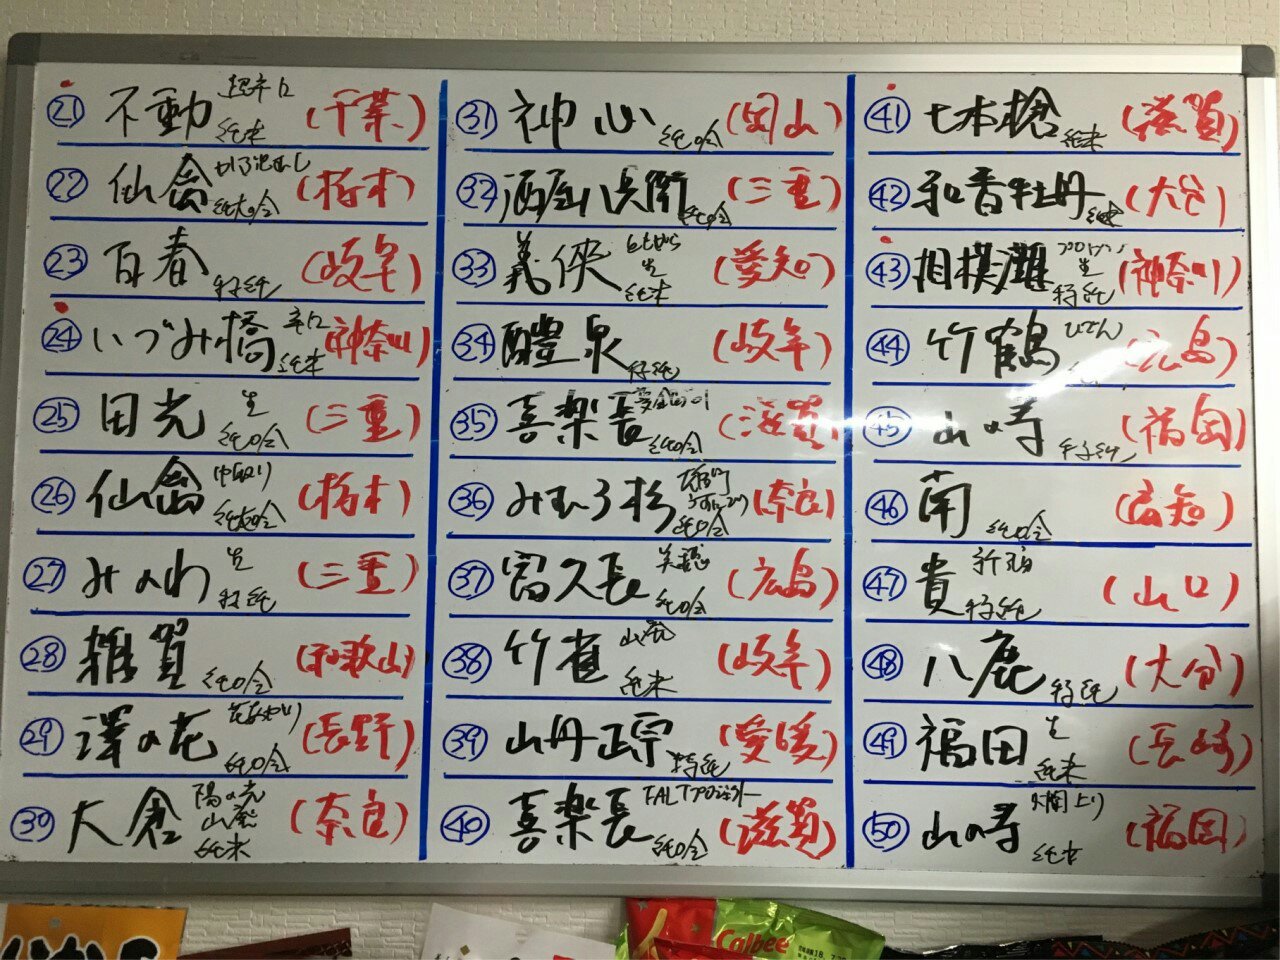 ㉑ 不動 超辛口 純米 (千葉)
㉒ 仙禽 かぶとむし 純大吟 (栃木)
㉓ 百春 特純 (岐阜)
㉔ いづみ橋 辛口 純米 (神奈川)
㉕ 田光 生 純吟 (三重)
㉖ 仙禽 中取り 純大吟 (栃木)
㉗ みのわ 生 特純 (三重)
㉘ 雑賀 純吟 (和歌山)
㉙ 澤の花 純吟 (長野)
㉚ 大倉 陽の光 山廃 純米 (奈良)
㉛ 神心 純吟 (岡山)
㉜ 酒屋八兵衛 純吟 (三重)
㉝ 義侠 生 純米 (愛知)
㉞ 醴泉 特純 (岐阜)
㉟ 喜楽長 純吟 (滋賀)
㊱ みむろ杉 純吟 (奈良)
㊲ 富久長 美穂 純吟 (広島)
㊳ 竹雀 山廃 純米 (岐阜)
㊴ 山丹正宗 特純 (愛媛)
㊵ 喜楽長 純吟 (滋賀)
㊶ 七本槍 純米 (滋賀)
㊷ 和香牡丹 純米 (大分)
㊸ 相模灘 生 特純 (神奈川)
㊹ 竹鶴 ひでん (広島)
㊺ 山の寿 特純 (福岡)
㊻ 南 純吟 (高知)
㊼ 貴 特純 (山口)
㊽ 八鹿 特純 (大分)
㊾ 福田 生 純米 (長崎)
㊿ 山の寿 純米 (福岡)
Calbee